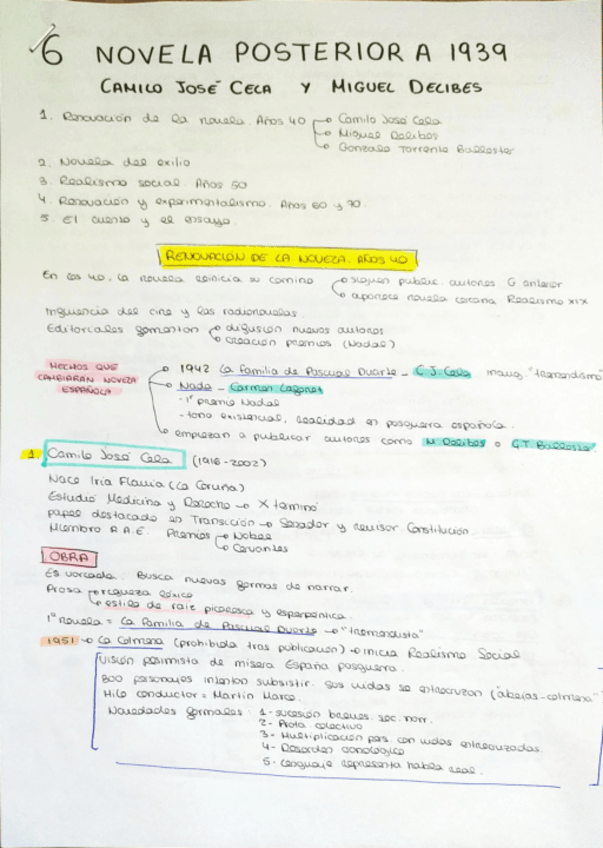 6 NOVELA POSTERIOR A 1939
CAMILO JOSÉ CELA Y MIGUEL DELIBES
1. Renovación de la novela. Años 40 → Camilo José Cela
→ Miguel Delibes
→ Gonzalo Torrente Ballester
2. Novela del exilio
3. Realismo social. Años 50
4. Renovación y experimentalismo. Años 60 y 70.
5. El cuento y el ensayo.
RENOVACIÓN DE LA NOVELA. AÑOS 40
En los 40, la novela reinicia su camino → siguen public. autores G. anterior
→ aparece novela cercana Realismo XIX
Influencia del cine y las radionovelas.
Editoriales fomentan → difusión nuevos autores
→ creación premios (Nadal)
HECHOS QUE CAMBIARÁN NOVELA ESPAÑOLA
→ 1942 La familia de Pascual Duarte - C.J. Cela inaug. "tremendismo"
→ Nada - Carmen Laforet
- 1º premio Nadal
- tono existencial, realidad en posguerra española.
→ empiezan a publicar autores como M. Delibes o G.T. Ballester
1. Camilo José Cela (1916-2002)
Nace Iria Flavia (La Coruña)
Estudió Medicina y Derecho → X terminó
papel destacado en Transición → Senador y revisor Constitución.
Miembro R.A.E. Premios → Nobel
→ Cervantes
OBRA
Es variada. Busca nuevas formas de narrar.
Prosa → riqueza léxica
→ estilo de raíz picaresca y esperpéntica.
1ª novela = La familia de Pascual Duarte → "tremendista"
1951 → La Colmena (prohibida tras publicación) → inicia Realismo Social
Visión pesimista de mísera España posguerra.
300 personajes intentan subsistir. Sus vidas se entrecruzan ("abejas-colmena")
Hilo conductor = Martín Marco.
Novedades formales: 1- sucesión breves sec. narr.
2- Prota colectivo
3- Multiplicación pers. con vidas entrecruzadas.
4- Desorden cronológico
5- Lenguaje representa habla real.